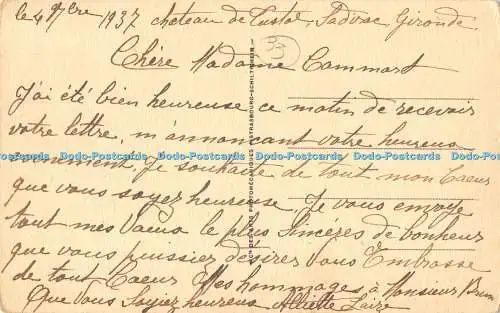 le 4 9bre 1937 chateau de Tustal, Sadirac Gironde.
33
Chère Madame Cammart
J'ai été bien heureuse ce matin de recevoir
votre lettre, m'annoncant votre heureux
Dodo-Postcards Dodo-Postcards Dodo-Postcards Dodo-Postcards Dodo-Postcards Dodo-Postcards
Je souhaite de tout mon Cœur
que vous soyez heureuse, Je vous envoye
tout mes Vœux le plus Sincères de bonheur
que vous puissiez désirer Vous Embrasse
de tout Cœur Mes hommages à Monsieur
Que Vous Soyiez heureux Alliette